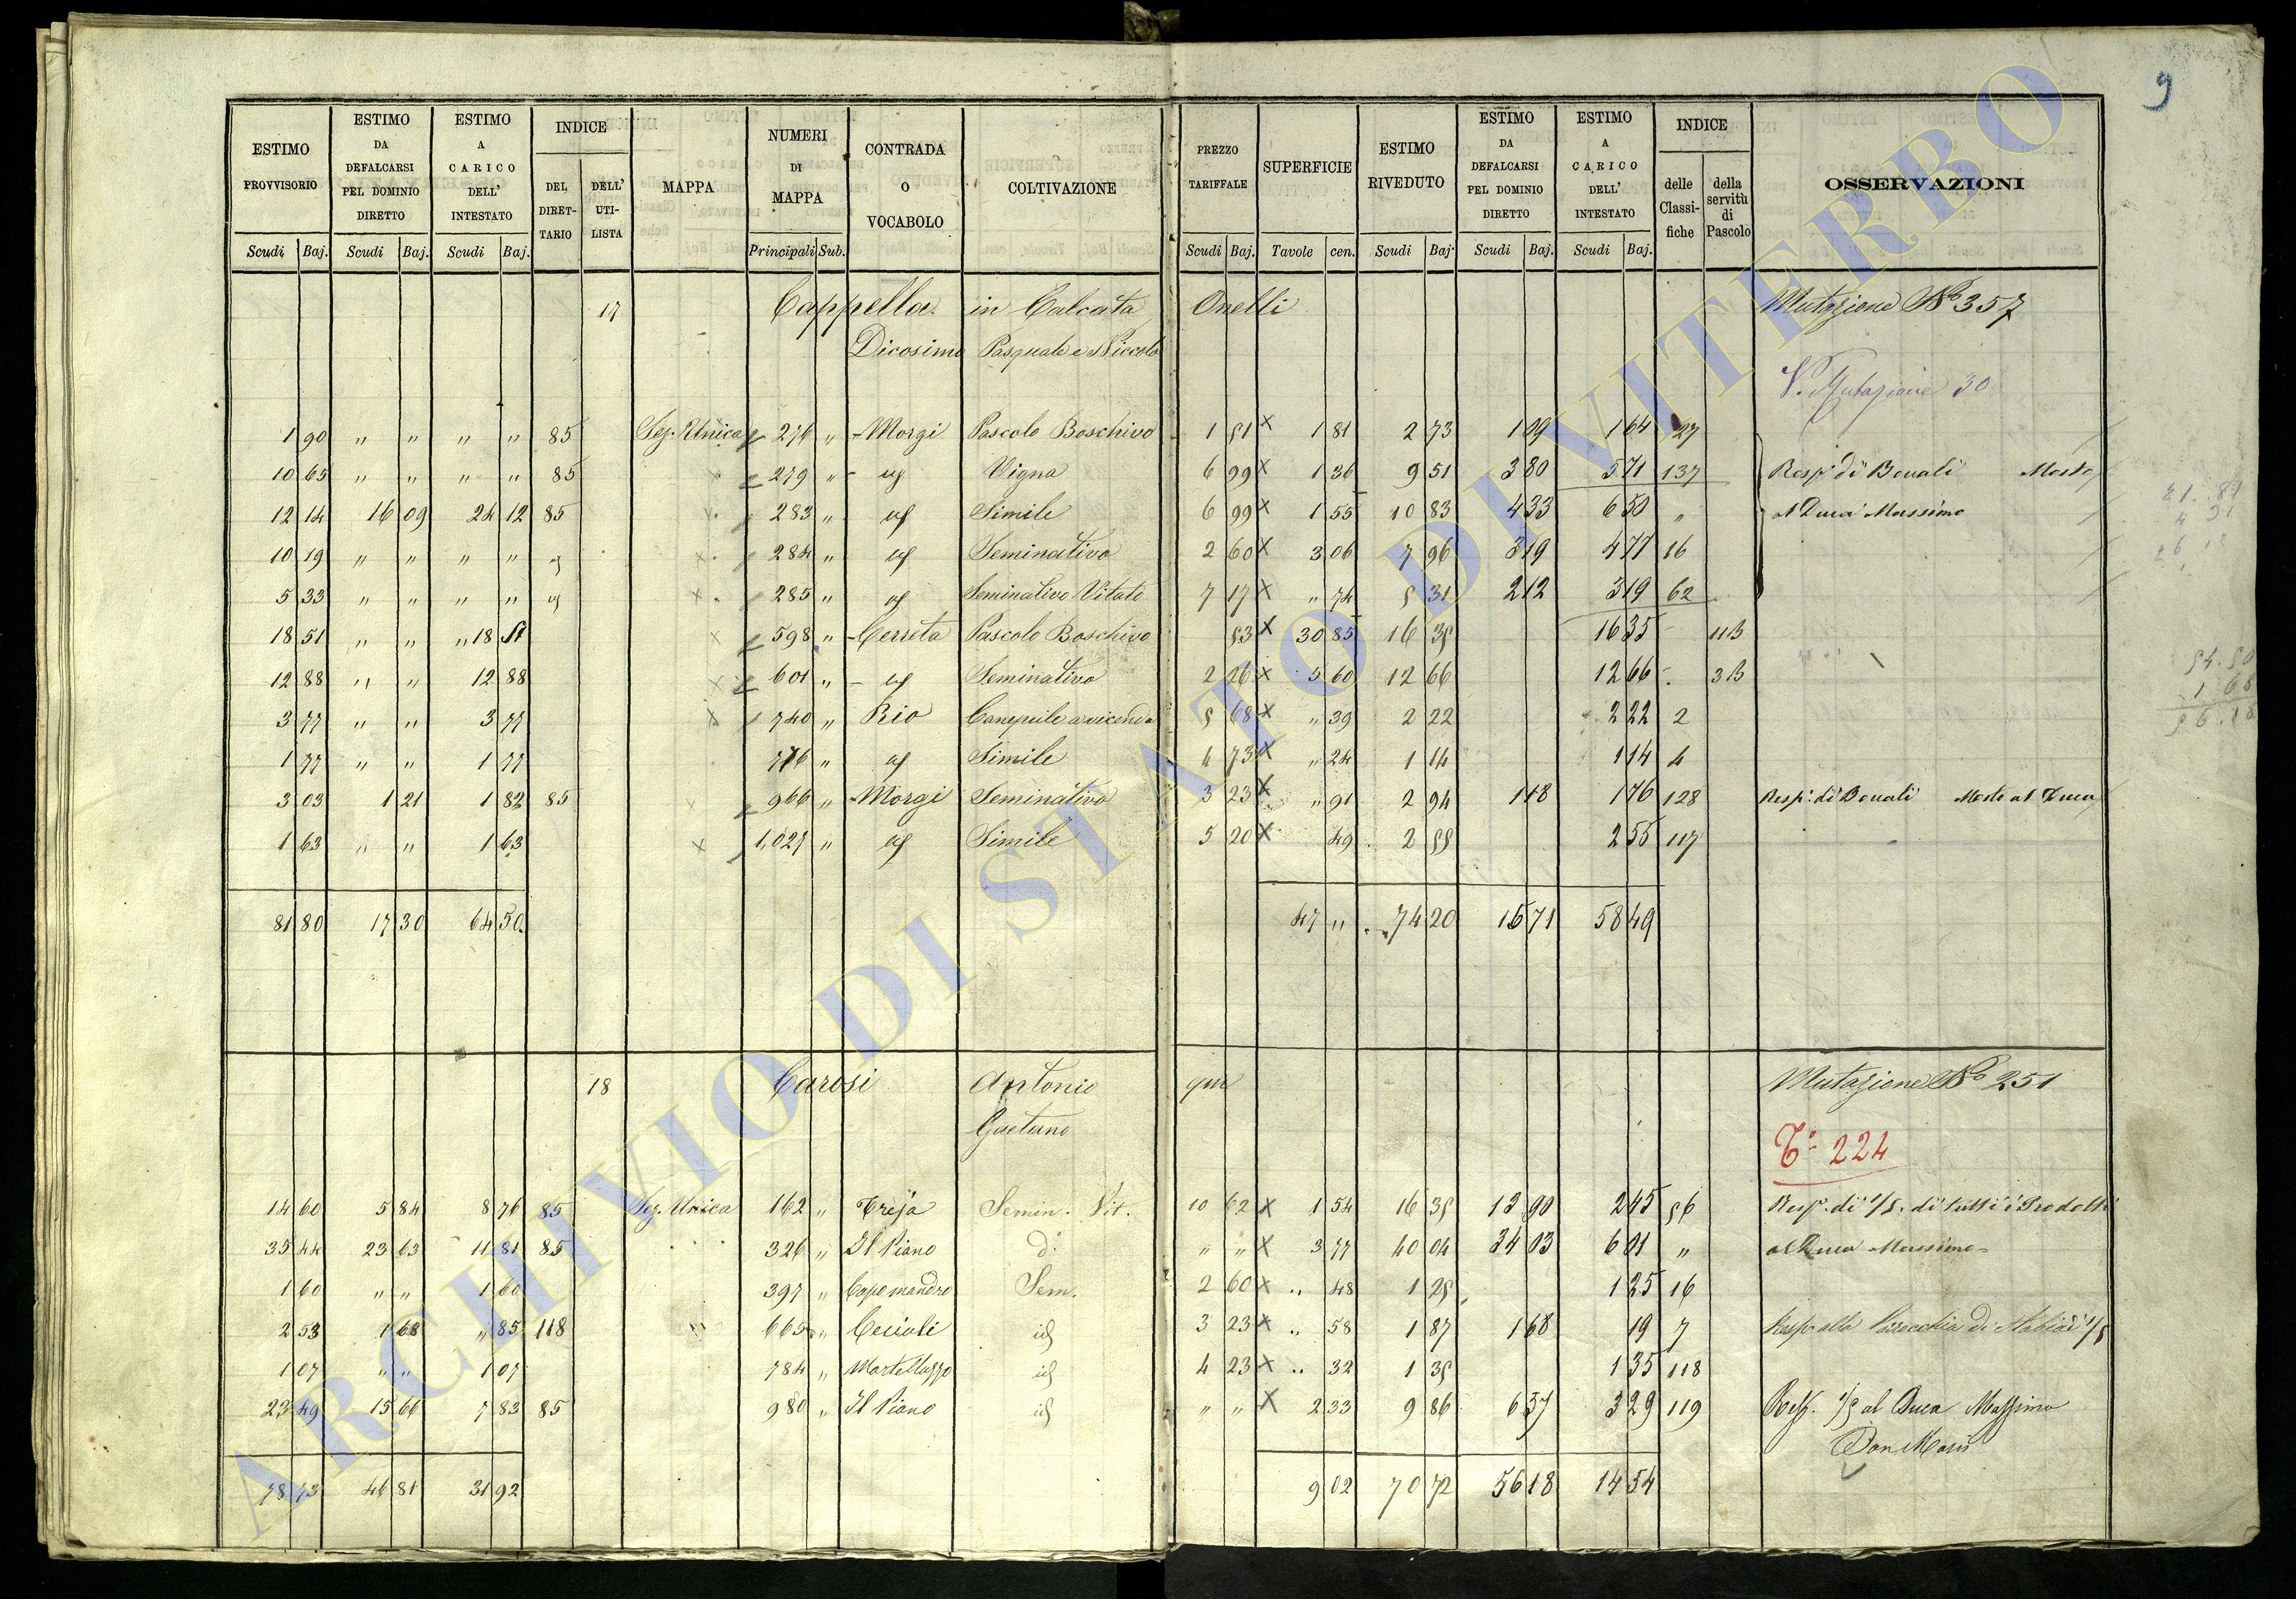 9
ESTIMO PROVVISORIO | ESTIMO DA DEFALCARSI PEL DOMINIO DIRETTO | ESTIMO A CARICO DELL' INTESTATO | INDICE | MAPPA | NUMERI DI MAPPA | CONTRADA O VOCABOLO | COLTIVAZIONE | PREZZO TARIFFALE | SUPERFICIE | ESTIMO RIVEDUTO | ESTIMO DA DEFALCARSI PEL DOMINIO DIRETTO | ESTIMO A CARICO DELL' INTESTATO | INDICE | OSSERVAZIONI
DEL DIRETTARIO | DELL' UTILISTA | delle Classifiche | della servitù di Pascolo
Scudi Baj. | Scudi Baj. | Scudi Baj. | Principali Sub. | Scudi Baj. | Tavole cen. | Scudi Baj. | Scudi Baj. | Scudi Baj.
17 Cappella in Calcata Onelli Mutazione No 357
Dicosimo Pasquale e Niccola
V. Mutazione 30
1 90 " " " " 85 Sez. Unica 276 " Morgi Pascolo Boschivo 1 51 x 1 81 2 73 1 09 1 64 27
10 65 " " " " 85 279 " id Vigna 6 99 x 1 36 9 51 3 80 5 71 137 Resp. di
12 14 16 09 24 12 85 283 " id Simile 6 99 x 1 55 10 83 4 33 6 50 " al Duca Massimo
10 19 " " " " id 284 " id Seminativo 2 60 x 3 06 7 96 3 19 4 77 16
5 33 " " " " id 285 " id Seminativo Vitato 7 17 x " 74 5 31 2 12 3 19 62
18 51 " " " 18 51 598 " Cerreta Pascolo Boschivo 53 x 30 85 16 35 16 35 11B
12 88 " " 12 88 601 " id Seminativo 2 26 x 5 60 12 66 12 66 3B
3 77 " " 3 77 740 " Rio Canepule a vicenda 5 68 x " 39 2 22 2 22 2
1 77 " " 1 77 776 " id Simile 4 73 x " 24 1 14 1 14 4
3 03 1 21 1 82 85 966 " Morgi Seminativo 3 23 x " 91 2 94 1 18 1 76 128 Resp. di al Duca
1 63 " " 1 63 1,027 " id Simile 5 20 x 49 2 55 2 55 117
81 80 17 30 64 50 47 " 74 20 15 71 58 49
54.50
1 68
56.18
18 Carosi Antonio qm Mutazione No 251
Gaetano
T. 224
14 60 5 84 8 76 85 Sez. Unica 162 " Treja Semin. Vit. 10 62 x 1 54 16 35 13 90 2 45 56 Resp. di 1/5. di tutti i Prodotti
35 44 23 63 11 81 85 326 " Il Piano d. " " x 3 77 40 04 34 03 6 01 " al Duca Massimo
1 60 " " 1 60 397 " Capomandro Sem. 2 60 x " 48 1 25 1 25 16
2 53 1 68 " 85 118 665 " Cecioli id 3 23 x " 58 1 87 1 68 19 7 Resp. alla Parocchia di 1/5
1 07 " " 1 07 784 " Martellazzo id 4 23 x " 32 1 35 1 35 118
23 49 15 66 7 83 85 980 " Il Piano id " " x 2 33 9 86 6 57 3 29 119 Resp. 1/5 al Duca Massimo
Don Mario
78 73 46 81 31 92 9 02 70 72 56 18 14 54
ARCHIVIO DI STATO DI VITERBO